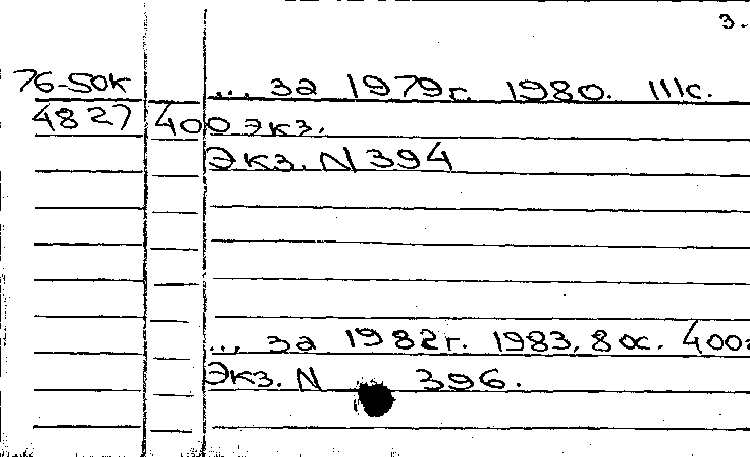 3.
76-50к ... за 1979г. 1980. 111с.
4827 400 экз.
Экз. N 394
... за 1982г. 1983, 80с. 400
Экз. N 396.